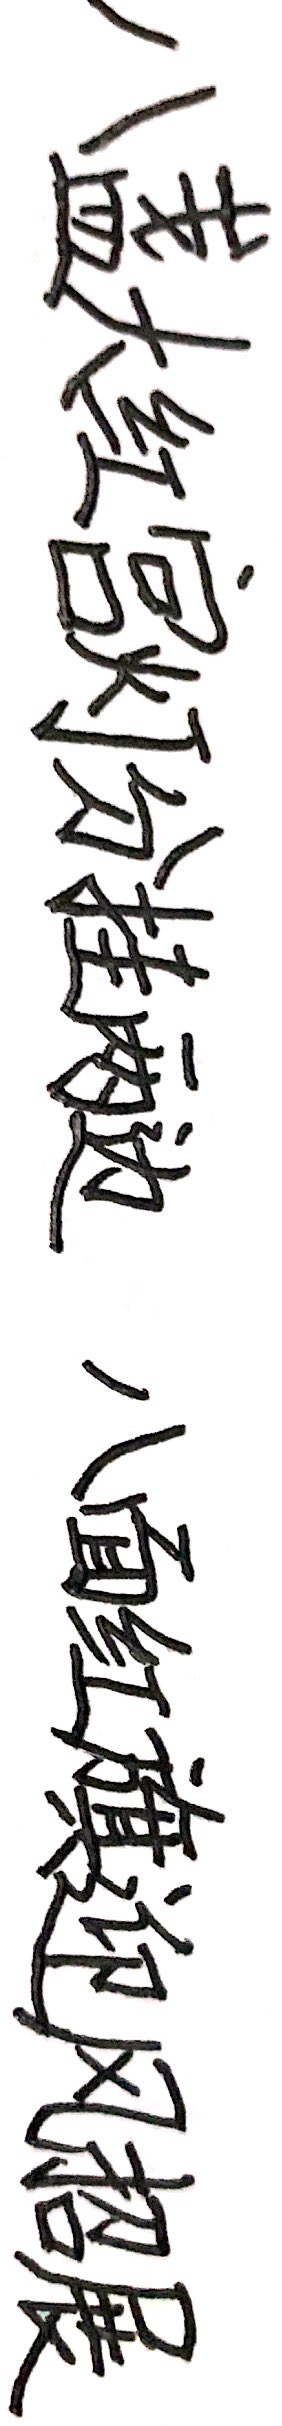 八盏大红宫灯分挂两边 八面红旗迎风招展